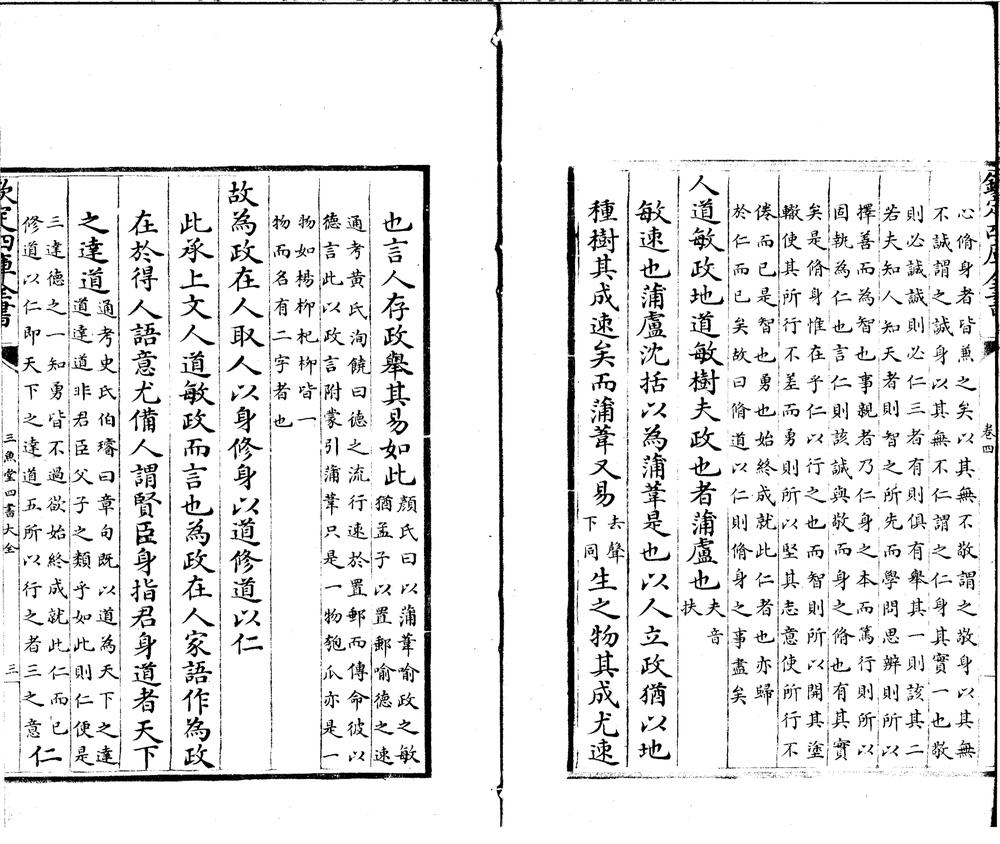 心脩身者皆兼之矣以其無不敬謂之敬身以其無
不誠謂之誠身以其無不仁謂之仁身其實一也敬
則必誠誠則必仁三者有則俱有舉其一則該其二
若夫知人知天者則智之所先而學問思辨則所以
擇善而為智也事親者乃仁身之本而篤行則所以
固執為仁也言仁則該誠與敬而身之脩也有其實
矣是脩身惟在乎仁以行之也而智則所以開其塗
轍使其所行不差而勇則所以堅其志意使所行不
倦而已是智也勇也始終成就此仁者也亦歸
於仁而已矣故曰脩道以仁則脩身之事盡矣
人道敏政地道敏樹夫政也者蒲盧也夫音
扶
敏速也蒲盧沈括以為蒲葦是也以人立政猶以地
種樹其成速矣而蒲葦又易去聲
下同生之物其成尤速
卷四
也言人存政舉其易如此顏氏曰以蒲葦喻政之敏
猶孟子以置郵喻德之速
通考黃氏洵饒曰德之流行速於置郵而傳命彼以
德言此以政言附蒙引蒲葦只是一物匏瓜亦是一
物如楊柳杞柳皆一
物而名有二字者也
故為政在人取人以身修身以道修道以仁
此承上文人道敏政而言也為政在人家語作為政
在於得人語意尤備人謂賢臣身指君身道者天下
之達道通考史氏伯璿曰章句既以道為天下之達
道達道非君臣父子之類乎如此則仁便是
三達德之一知勇皆不過欲始終成就此仁而已
修道以仁即天下之達道五所以行之者三之意仁
欽定四庫全書
三魚堂四書大全
三